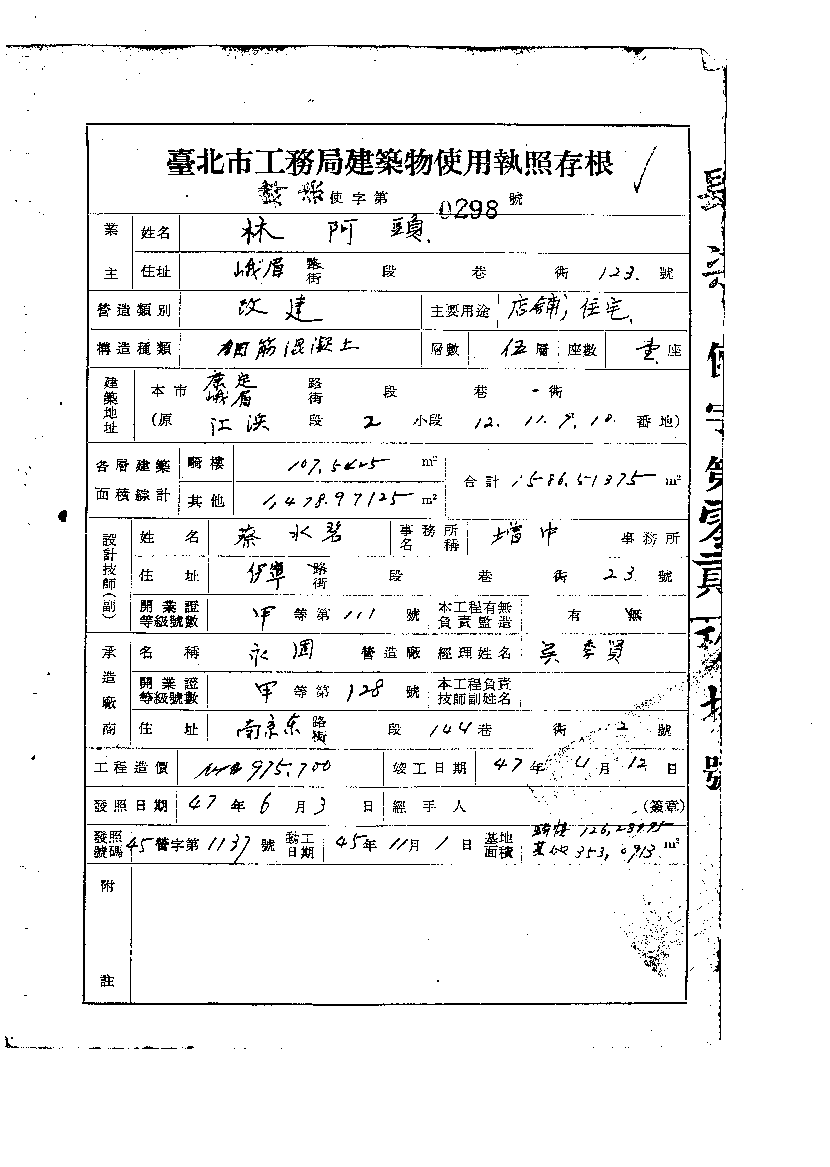 臺北市工務局建築物使用執照存根
使字第 0298 號
業主 姓名 林阿頭
住址 峨眉 路街 段 巷 衖 123 號
營造類別 改建 主要用途 店鋪,住宅
構造種類 鋼筋混凝土 層數 伍層 座數 壹座
建築地址 本市 康定 峨眉 路街 段 巷 衖
(原 江浜 段 2 小段 12. 11. 9. 10. 番地)
各層建築面積綜計 騎樓 107.5425 m² 合計 1586.51375 m²
其他 1,478.97125 m²
設計技師(副) 姓名 蔡水碧 事務所名稱 增中 事務所
住址 伊寧 路街 段 巷 衖 23 號
開業證等級號數 甲 等第 111 號 本工程有無負責監造 有 無
承造廠商 名稱 永固 營造廠 經理姓名 吳李賢
開業證等級號數 甲 等第 128 號 本工程負責技師副姓名
住址 南京東 路街 段 144 巷 衖 2 號
工程造價 975,700 竣工日期 47年 4月 12日
發照日期 47年 6月 3日 經手人 (簽章)
發照號碼 45營字第 1137 號 動工日期 45年 11月 1日 基地面積 騎樓 126.23975 其他 353.0913 m²
附註
使字第零貳
號